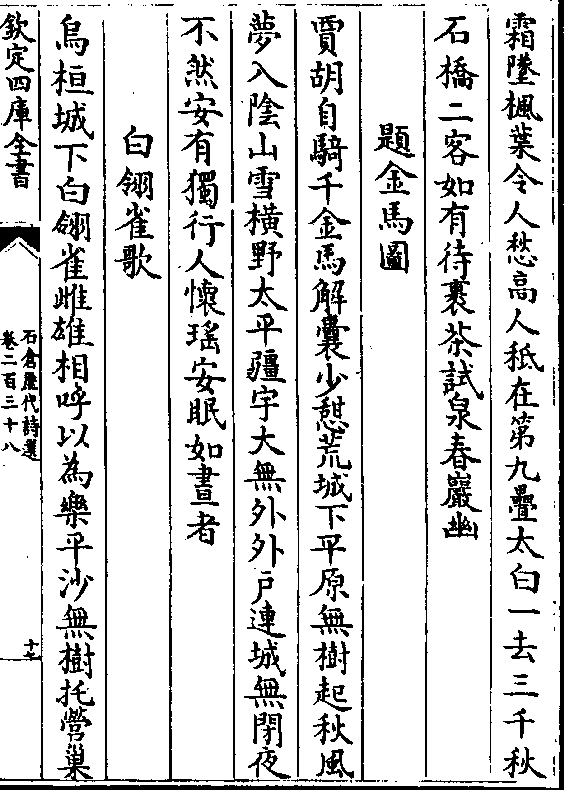 霜墜楓葉令人愁高人秖在第九疊太白一去三千秋
石橋二客如有待裹茶試泉春巖幽
題金馬圖
賈胡自騎千金馬解囊少憩荒城下平原無樹起秋風
夢入陰山雪橫野太平疆宇大無外外戶連城無閉夜
不然安有獨行人懷瑤安眠如晝者
白翎雀歌
烏桓城下白翎雀雌雄相呼以為樂平沙無樹托營巢
欽定四庫全書
石倉歷代詩選
卷二百三十八
十七